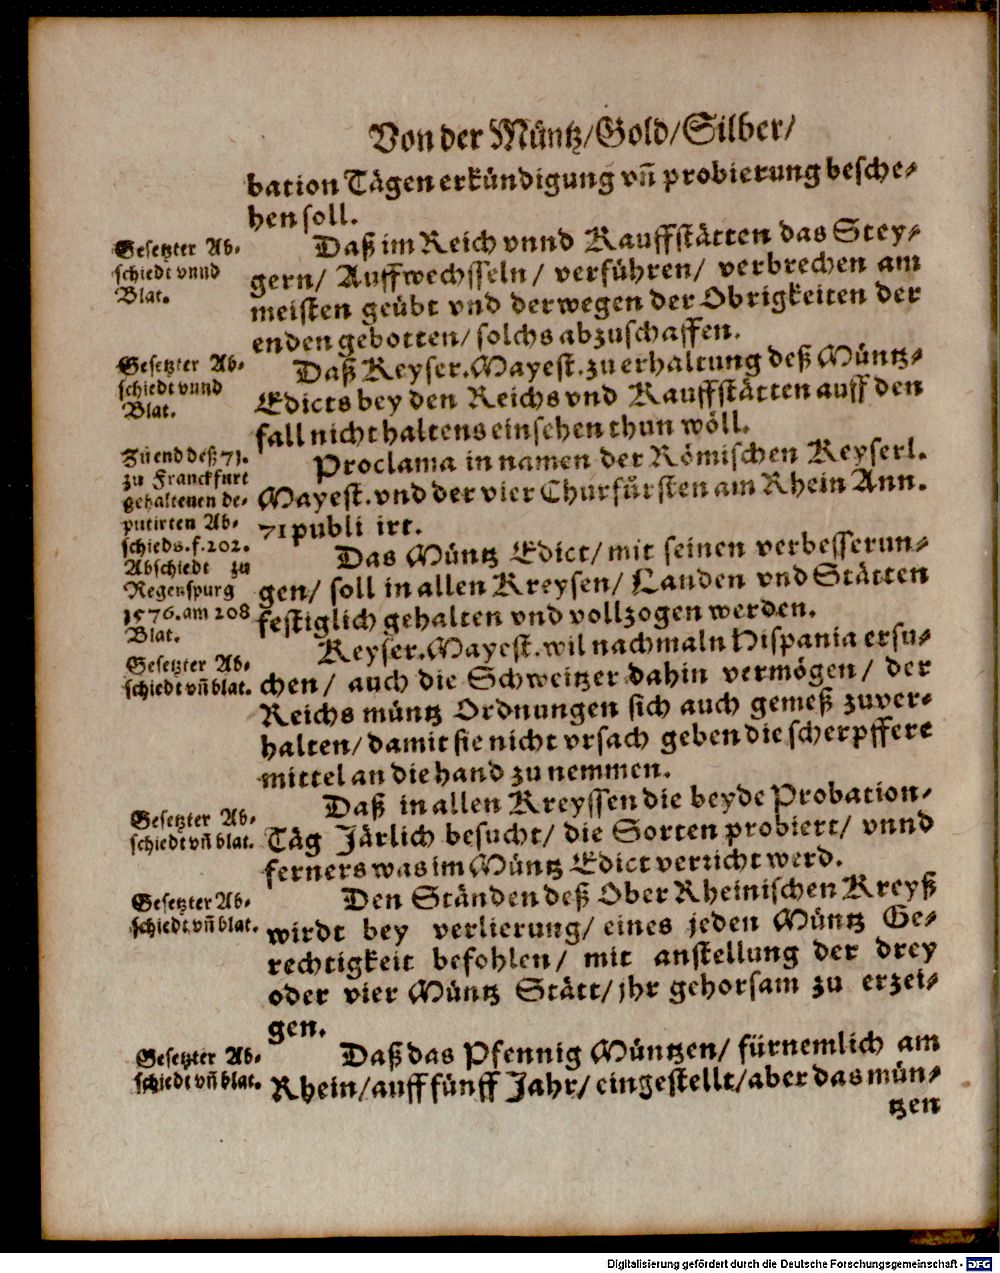 Von der Müntz/Gold/Silber/
bation Tägen erkündigung vñ probierung besche-
hen soll.
Gesetzter Ab-
schiedt vnnd
Blat.
Daß im Reich vnnd Kauffstätten das Stey-
gern/ Auffwechsseln/ verführen/ verbrechen am
meisten geübt vnd derwegen der Obrigkeiten der
enden gebotten/ solchs abzuschaffen.
Gesetzter Ab-
schiedt vnnd
Blat.
Daß Keyser. Mayest. zu erhaltung deß Müntz-
Edicts bey den Reichs vnd Kauffstätten auff den
fall nicht haltens einsehen thun wöll.
Zu end deß 71.
zu Franckfurt
gehaltenen de-
putirten Ab-
schieds. f. 202.
Proclama in namen der Römischen Keyserl.
Mayest. vnd der vier Churfürsten am Rhein Ann.
71 publi irt.
Abschiedt zu
Regenspurg
1576. am 208
Blat.
Das Müntz Edict/ mit seinen verbesserun-
gen/ soll in allen Kreysen/ Landen vnd Stätten
festiglich gehalten vnd vollzogen werden.
Gesetzter Ab-
schiedt vñ blat.
Keyser. Mayest. wil nachmaln Hispania ersu-
chen/ auch die Schweitzer dahin vermögen/ der
Reichs müntz Ordnungen sich auch gemeß zuver-
halten/ damit sie nicht vrsach geben die scherpffere
mittel an die hand zu nemmen.
Gesetzter Ab-
schiedt vñ blat.
Daß in allen Kreyssen die beyde Probation-
Täg Järlich besucht/ die Sorten probiert/ vnnd
ferners was im Müntz Edict verricht werd.
Gesetzter Ab-
schiedt vñ blat.
Den Ständen deß Ober Rheinischen Kreyß
wirdt bey verlierung/ eines jeden Müntz Ge-
rechtigkeit befohlen/ mit anstellung der drey
oder vier Müntz Stätt/ jhr gehorsam zu erzei-
gen.
Gesetzter Ab-
schiedt vñ blat.
Daß das Pfennig Müntzen/ fürnemlich am
Rhein/ auff fünff Jahr/ eingestellt/ aber das mün-
tzen
Digitalisierung gefördert durch die Deutsche Forschungsgemeinschaft - DFG